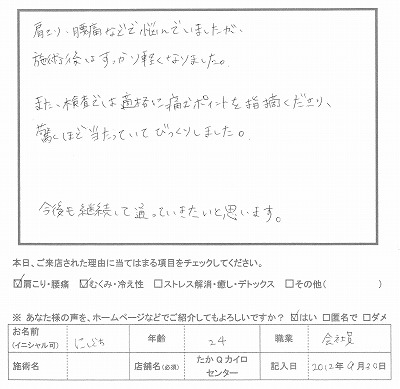 肩こり、腰痛などで悩んでいましたが、
施術後はすっかり軽くなりました。
また、検査では適格に痛むポイントを指摘くださり、
驚くほど当たっていてびっくりしました。
今後も継続して通っていきたいと思います。
本日、ご来店された理由に当てはまる項目をチェックしてください。
☑肩こり・腰痛 ☑むくみ・冷え性 □ストレス解消・癒し・デトックス □その他( )
※ あなた様の声を、ホームページなどでご紹介してもよろしいですか？ ☑はい □匿名で □ダメ
お名前 (イニシャル可) 年齢 24 職業 会社員
施術名 店舗名(必須) たかQカイロセンター 記入日 2012年9月30日